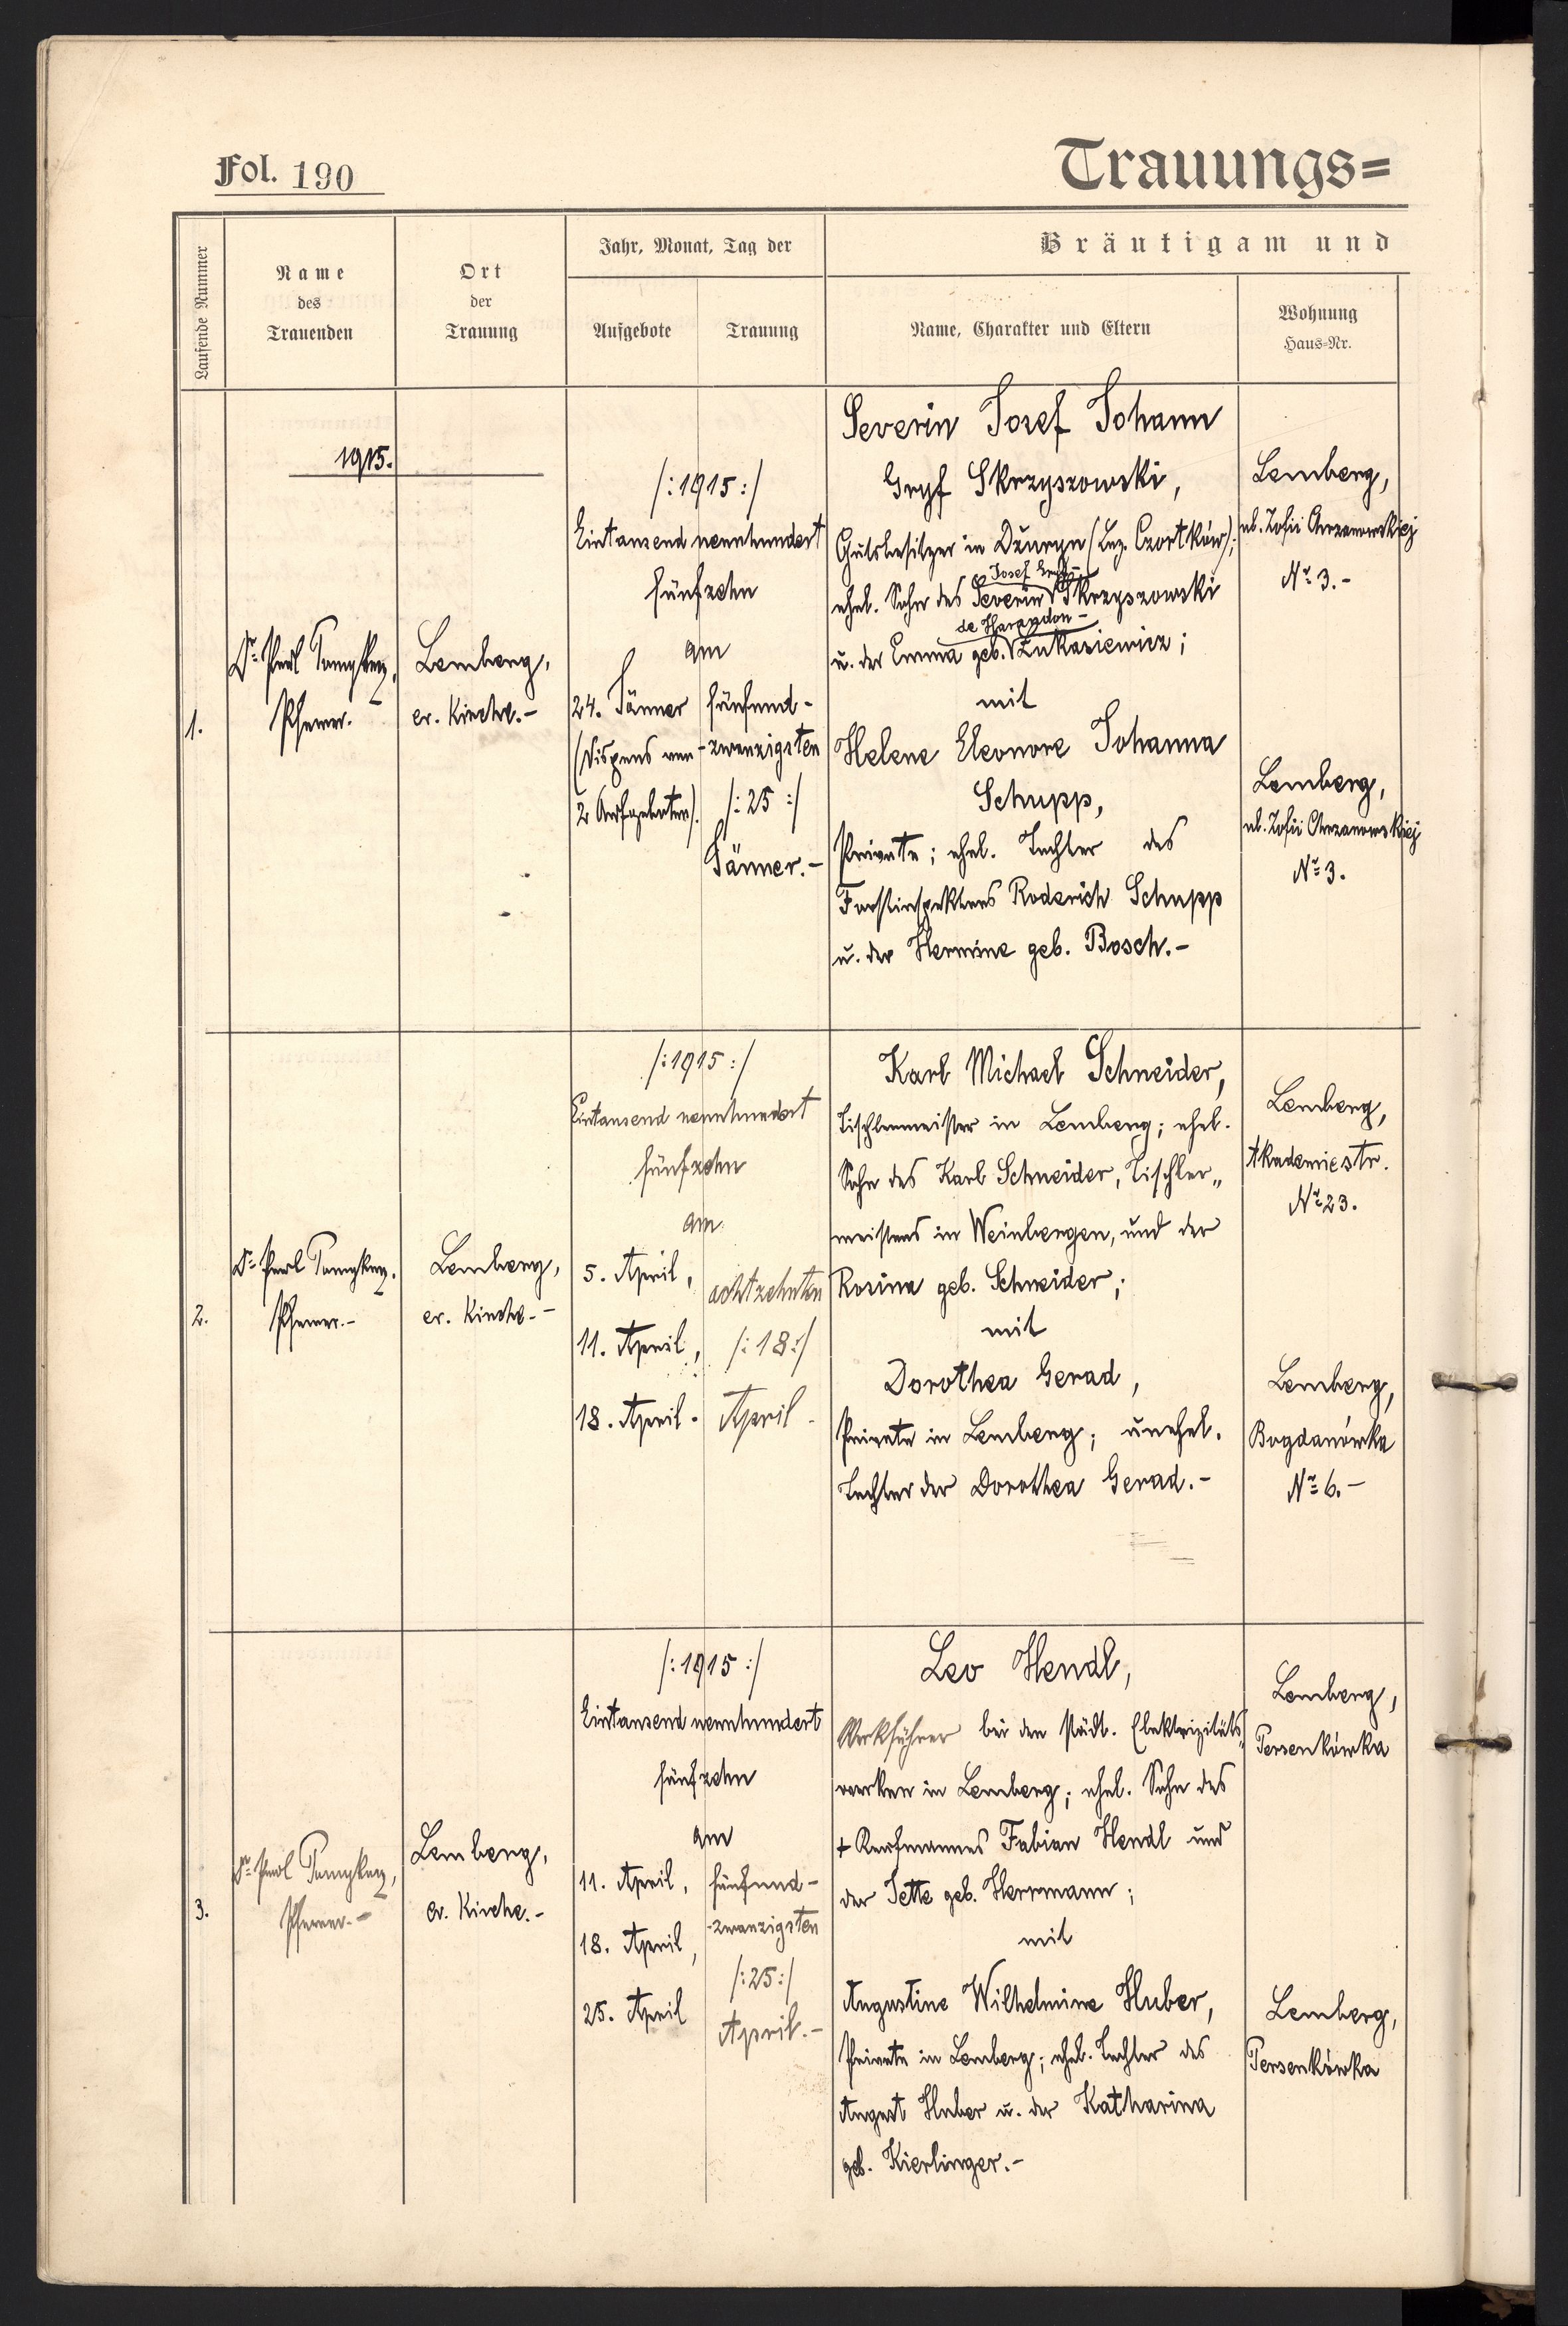 Fol. 190
Trauungs=
Laufende Nummer
Name
des
Trauenden
Ort
der
Trauung
Jahr, Monat, Tag der
Aufgebote
Trauung
Bräutigam und
Name, Charakter und Eltern
Wohnung
Haus=Nr.
1915.
1.
Dr.
Pfarrer.
Lemberg,
ev. Kirche.-
/:1915:/
Eintausend neunhundert
fünfzehn
am
24. Jänner
(Dispens von
2 Aufgeboten).
fünfund-
-zwanzigsten
/:25:/
Jänner.-
Severin Josef Johann
Gryf Skrzyszowski,
Gutsbesitzer in Dżuryn (Bez. Czortków);
Josef Gryf-
ehel. Sohn des Severin Skrzyszowski
de Harazdon-
u. der Emma geb. Łukasiewicz;
mit
Helene Eleonore Johanna
Schupp,
Private; ehel. Tochter des
Forstinspektors Roderich Schupp
u. der Hermine geb. Bosch.-
Lemberg,
ul. Zofii Chrzanowskiej
Nr. 3.-
Lemberg,
ul. Zofii Chrzanowskiej
Nr. 3.
2.
Dr.
Pfarrer.-
Lemberg,
ev. Kirche.-
/:1915:/
Eintausend neunhundert
fünfzehn
am
5. April,
11. April,
18. April.
achtzehnten
/:18:/
April.
Karl Michael Schneider,
Tischlermeister in Lemberg; ehel.
Sohn des Karl Schneider, Tischler„
meisters in Weinbergen, und der
Rosina geb. Schneider;
mit
Dorothea Gerad,
Private in Lemberg; unehel.
Tochter der Dorothea Gerad.-
Lemberg,
Akademiestr.
Nr. 23.
Lemberg,
Bogdanówka
Nr. 6.-
3.
Dr.
Pfarrer.-
Lemberg,
ev. Kirche.-
/:1915:/
Eintausend neunhundert
fünfzehn
am
11. April,
18. April,
25. April
fünfund-
-zwanzigsten
/:25:/
April.-
Leo Hendl,
Werkführer bei den städt. Elektrizitäts„
werken in Lemberg; ehel. Sohn des
+ Kaufmannes Fabian Hendl und
der Jette geb. Herrmann;
mit
Augustine Wilhelmine Huber,
Private in Lemberg; ehel. Tochter des
August Huber u. der Katharina
geb. Kierlinger.-
Lemberg,
Persenkówka
Lemberg,
Persenkówka